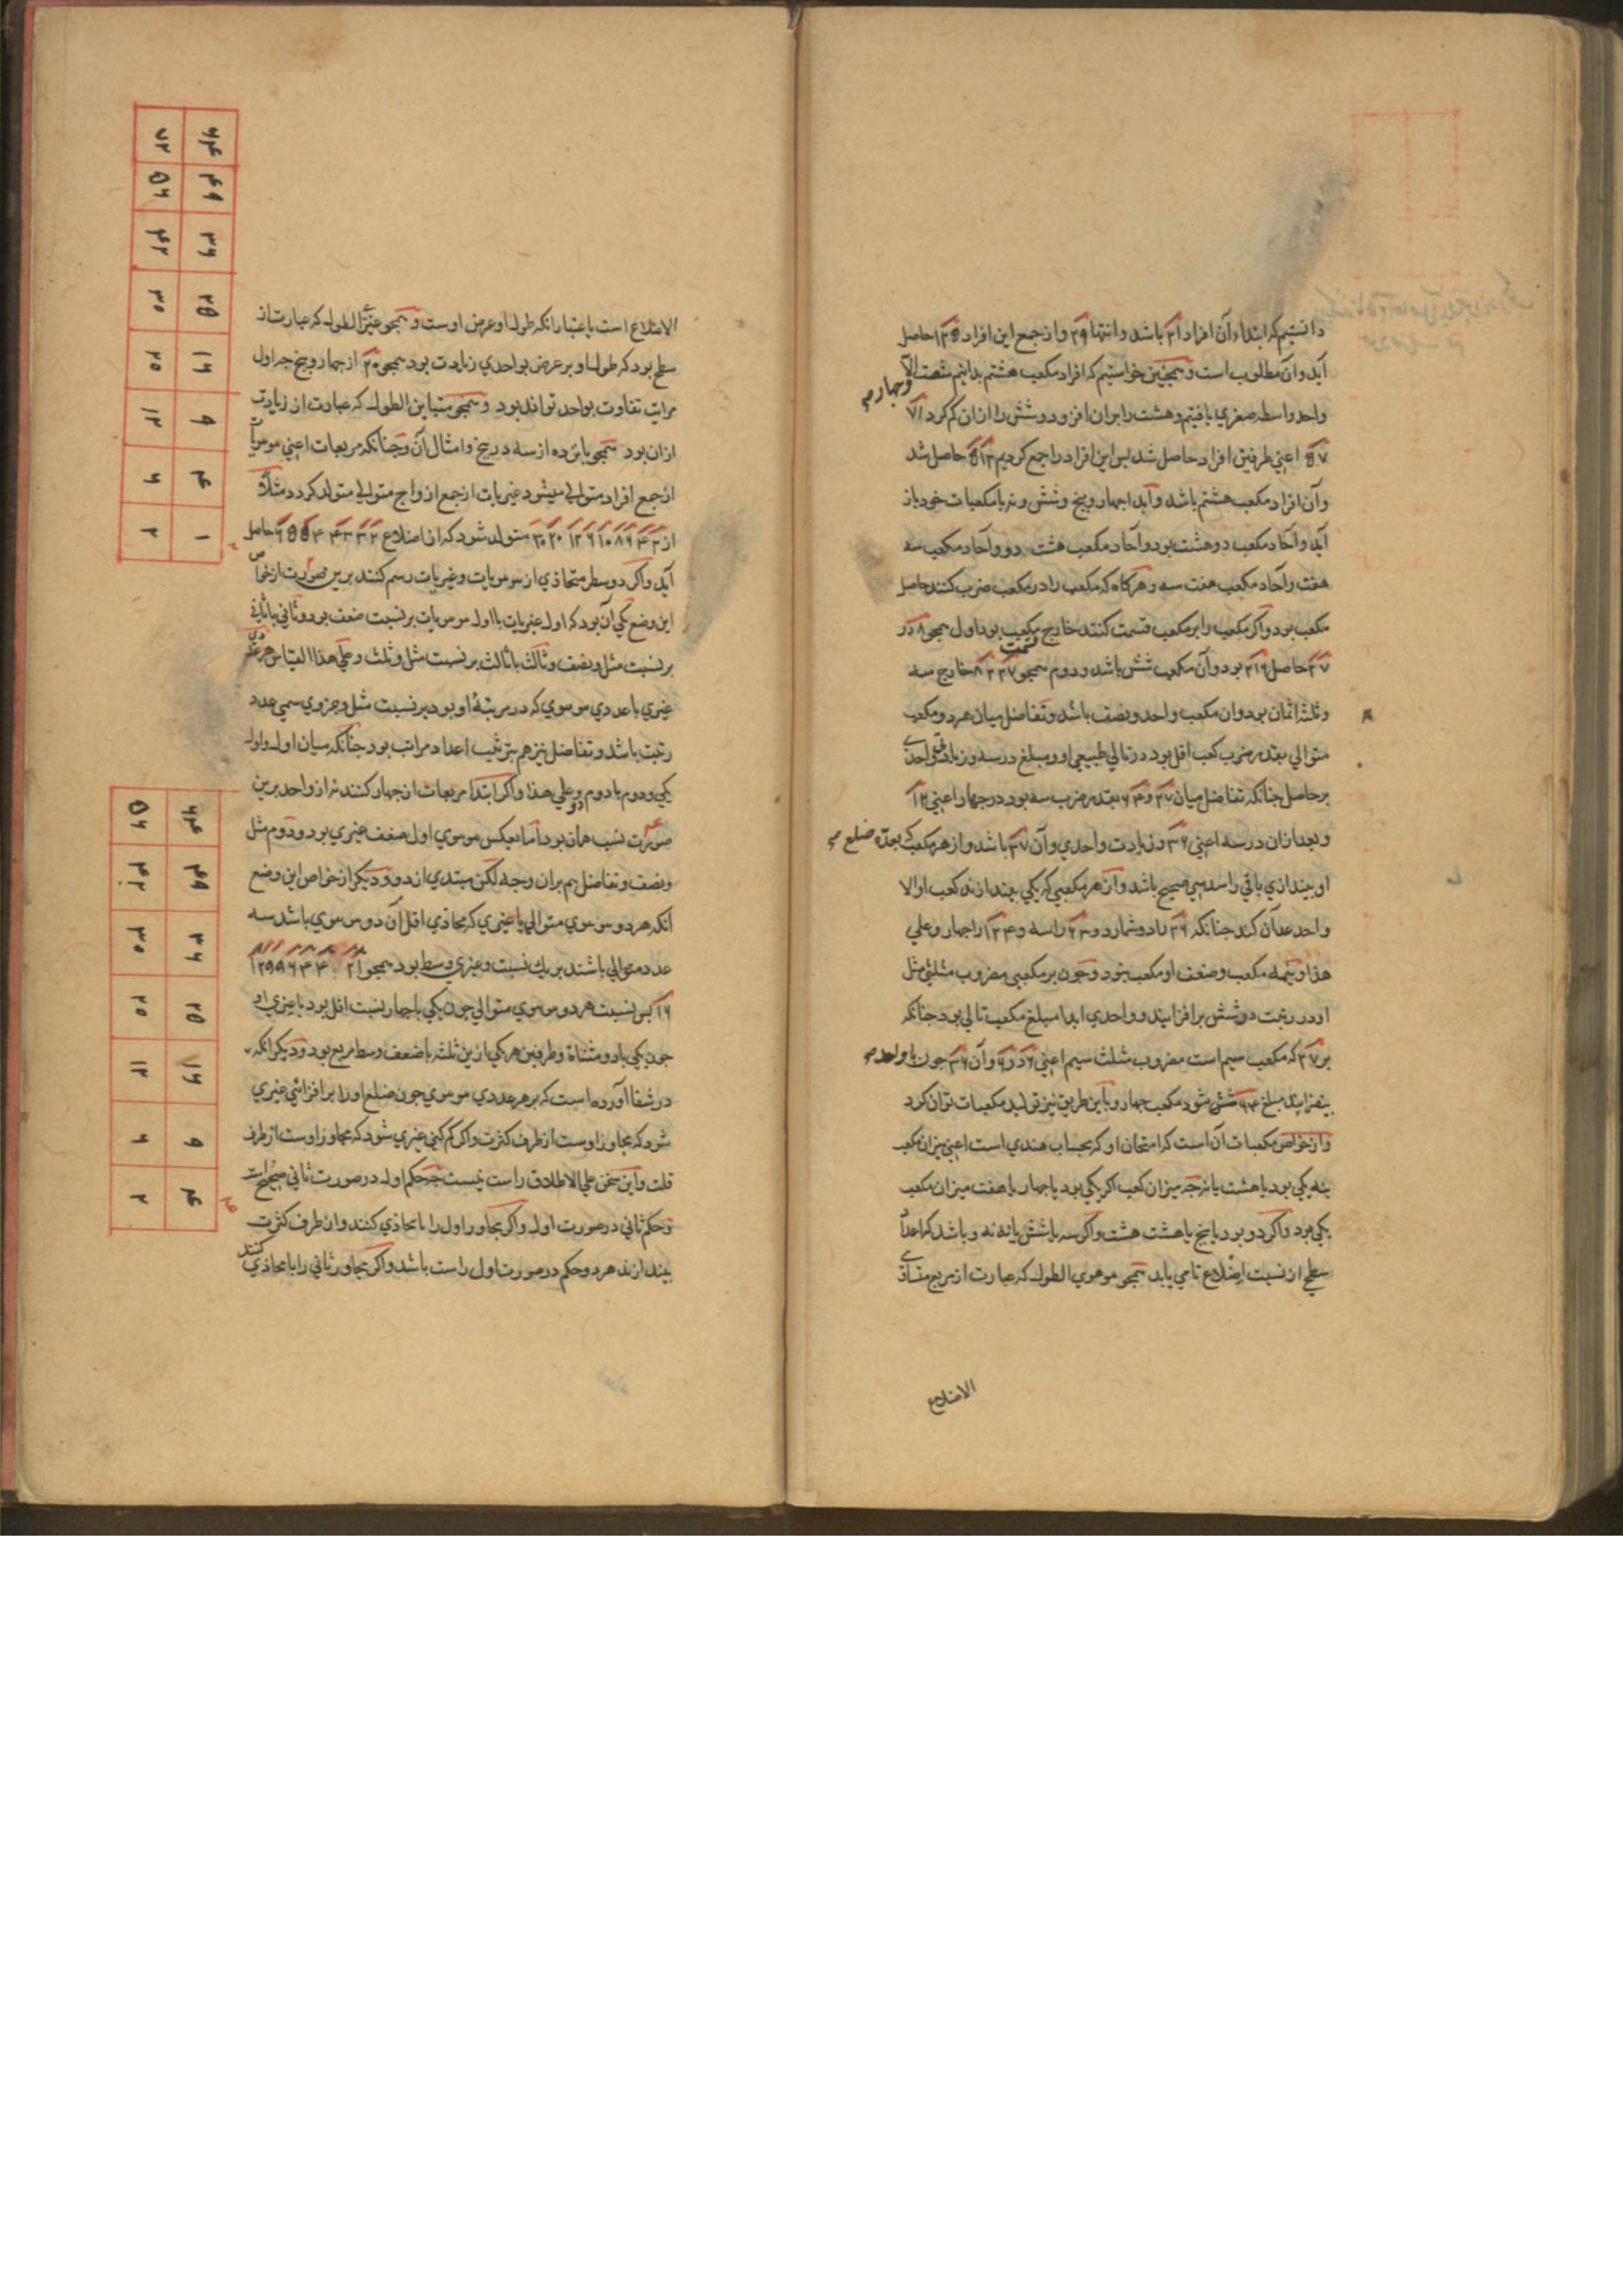 دانستیم که ابتداء آن افراد ۲۱ باشد و انتها ۲۹ و از جمع این افراد ۱۲۵ حاصل
آید و آن مطلوب است و همچنین خواستیم که افراد مکعب هشتم بدانیم شصت
وچهارم
واحد واسطه صغری یافتیم و هشت را بران افزود و شش را ازان کم کرد ۷۱
۵۷ اعنی طرفین افراد حاصل شد پس این افراد را جمع کردیم ۵۱۲ حاصل شد
و آن افراد مکعب هشتم باشد و آید اجهار و پنج و شش و نه با مکعبات خود باز
آید و آحاد مکعب دو هشت بود و آحاد مکعب هشت دو و آحاد مکعب سه
هفت و آحاد مکعب هفت سه و هرگاه که مکعب را در مکعب ضرب کنند حاصل
مکعب بود و اگر مکعب را بر مکعب قسمت کنند خارج قسمت مکعب بود اول همجو ۸ در
۲۷ حاصل ۲۱۶ بود و آن مکعب شش باشد و دوم همجو ۲۷ ۸ خارج سه
و ثلثه اثمان بود و ان مکعب واحد و نصف باشد و تفاضل میان هر دو مکعب
متوالی بقدر ضرب کعب اقل بود در تالی طبیعی او و مبلغ در سه و زیادتی واحدی
بر حاصل جنانکه تفاضل میان ۲۷ و ۶۴ بقدر ضرب سه بود در جهار اعنی ۱۲
و بعد ازان در سه اعنی ۳۶ و زیادت واحدی و آن ۳۷ باشد و از هر مکعب که بعدّه ضلع
او بیندازی باقی را سدسی صحیح باشد و آن هر مکعبی که یکی بیندازند کعب او الا
واحد عدّ آن کند جنانکه
هذا و تتمه مکعب و ضعف او مکعب بود و جون بر مکعبی مضروب مثلثی مثل
او در رتبت در شش بر افزایند و واحدی ابدا مبلغ مکعب تالی بود جنانکه
بر ۲۷ که مکعب سیم است مضروب مثلث سیم اعنی ۶ در ۶ و آن ۳۶ جون با واحد
بیفزایند مبلغ ۶۴ شود مکعب جهار و باین طریق نیز تولید مکعبات توان کرد
و از خواص مکعبات آن است که امتحان او که بحساب هندی است اعنی میزان مکعب
بنه یکی بود یا هشت یا نه جه میزان کعب اگر یکی بود یا جهار یا هفت میزان مکعب
یکی بود و اگر دو بود یا پنج یا هشت هشت و اگر سه یا شش یا نه نه و باشد که اعداد
سطحی از نسبت اضلاع نامی یابد همجو موموی الطول که عبارت از مربع متساوی
الاضلاع
الاضلاع است باعتبار انکه طول او عرض اوست و همجو غیری الطول که عبارت از
سطحی بود که طول او بر عرض بواحدی زیادت بود همجو ۲۰ از جهار و پنج جه اول
مراتب تفاوت بواحد تواند بود و همجو متباین الطول که عبارت از زیادت
ازان بود همجو پانزده از سه در پنج و امثال آن و جنانکه مربعات اعنی مومویات
از جمع افراد متوالی میشود غیریات از جمع ازواج متوالی متولد گردد مثلا
آید و اگر دو سطر متحاذی از مومویات و غیریات رسم کنند برین صورت از خواص
این وضع یکی آن بود که اول غیریات با اول مومویات بر نسبت ضعف بود و ثانی با ثانی
بر نسبت مثل و نصف و ثالث با ثالث بر نسبت مثل و ثلث و علی هذا القیاس هر عدد
غیری با عددی موموی که در مرتبهٔ او بود بر نسبت مثل و جزوی سمی عدد
رتبت باشد و تفاضل نیز هم بترتیب اعداد مراتب بود جنانکه میان اول و اول
یکی و دوم با دوم دو و علی هذا و اگر ابتدا مربعات از جهار کنند نه از واحد برین
صورت نسب همان بود اما بعکس موموی اول ضعف غیری بود و دوم مثل
و نصف و تفاضل هم بران وجه لکن مبتدی از دو و دیگر از خواص این وضع
انکه هر دو موموی متوالی با غیری که محاذی اقل آن دو موموی باشد سه
عدد متوالی باشند بر یک نسبت و غیری وسط بود همجو
۱۶ پس نسبت هر دو موموی متوالی جون یکی با جهار نسبت اقل بود با غیری او
جون یکی با دو مثناة و طرفین هر یکی ازین ثلثه با ضعف وسط مربع بود و دیگر انکه
در شفا آورده است که بر هر عددی موموی جون ضلع او را بر افزائی غیری
شود که مجاور اوست از طرف کثرت و اگر کم کنی غیری شود که مجاور اوست از طرف
قلت و این سخن علی الاطلاق راست نیست جه حکم اول در صورت ثانی صحیح است
و حکم ثانی در صورت اول و اگر مجاور اول را با محاذی کنند و از طرف کثرت
بیندازند هر دو حکم در صورت اول راست باشد و اگر مجاور ثانی را با محاذی کنند
۶۴ ۷۲
۴۹ ۵۶
۳۶ ۴۲
۲۵ ۳۰
۱۶ ۲۰
۹ ۱۲
۴ ۶
۱ ۲
۶۴ ۵۶
۴۹ ۴۲
۳۶ ۳۰
۲۵ ۲۰
۱۶ ۱۲
۹ ۶
۴ ۲